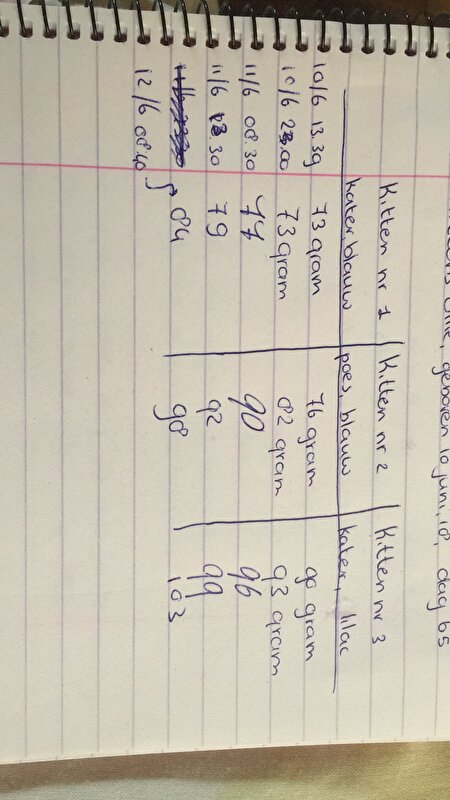 geboren 10 juni, 18, dag 65
Kitten nr 1 Kitten nr 2 Kitten nr 3
kater blauw poes, blauw kater, lilac
10/6 13.39 73 gram 76 gram 90 gram
10/6 23.00 73 gram 82 gram 93 gram
11/6 08.30 77 90 96
11/6 .30 79 92 99
84 98 103
12/6 08.40